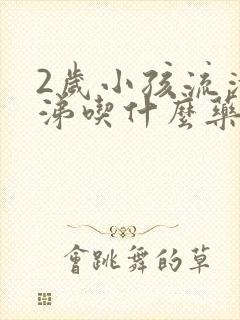 2歲小孩流清
涕喫什麼藥
會跳舞的草